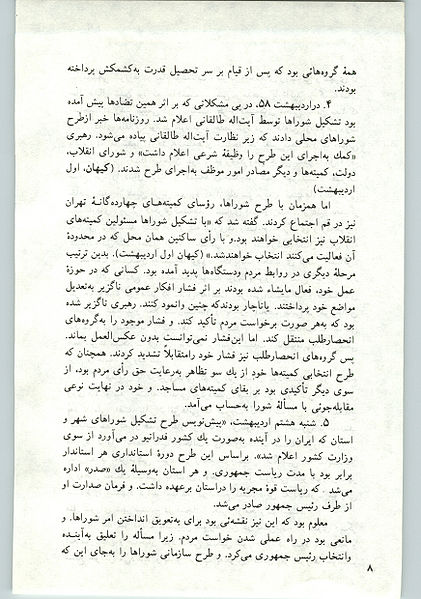 همهٔ گروه‌هائی بود که پس از قیام بر سر تحصیل قدرت به‌کشمکش پرداخته
بودند.
۴. دراردیبهشت ۵۸، در پی مشکلاتی که بر اثر همین تضادها پیش آمده
بود تشکیل شوراها توسط آیت‌اله طالقانی اعلام شد. روزنامه‌ها خبر ازطرح
شوراهای محلی دادند که زیر نظارت آیت‌اله طالقانی پیاده می‌شود. رهبری
«کمك به‌اجرای این طرح را وظیفهٔ شرعی اعلام داشت» و شورای انقلاب،
دولت، کمیته‌ها و دیگر مصادر امور موظف به‌اجرای طرح شدند. (کیهان، اول
اردیبهشت)
اما همزمان با طرح شوراها، رؤسای کمیته‌های چهارده‌گانهٔ تهران
نیز در قم اجتماع کردند. گفته شد که «با تشکیل شوراها مسئولین کمیته‌های
انقلاب نیز انتخابی خواهند بود.و با رأی ساکنین همان محل که در محدودهٔ
آن فعالیت می‌کنند انتخاب خواهندشد.» (کیهان اول اردیبهشت). بدین ترتیب
مرحلهٔ دیگری در روابط مردم ودستگاه‌ها پدید آمده بود. کسانی که در حوزهٔ
عمل خود، فعال مایشاء شده بودند بر اثر فشار افکار عمومی ناگزیر به‌تعدیل
مواضع خود پرداختند. یاناچار بودندکه چنین وانمود کنند. رهبری ناگزیر شده
بود که به‌هر صورت برخواست مردم تأکید کند. و فشار موجود را به‌گروه‌های
انحصارطلب منتقل کند. اما این‌فشار نمی‌توانست بدون عکس‌العمل بماند.
پس گروه‌های انحصارطلب نیز فشار خود رامتقابلاً تشدید کردند. همچنان که
طرح انتخابی کمیته‌ها خود از یك سو تظاهر به‌رعایت حق رأی مردم بود، از
سوی دیگر تأکیدی بود بر بقای کمیته‌های مساجد. و خود در نهایت نوعی
مقابله‌جوئی با مسألهٔ شورا به‌حساب می‌آمد.
۵. شنبه هشتم اردیبهشت، «پیش‌نویس طرح تشکیل شوراهای شهر و
استان که ایران را در آینده به‌صورت یك کشور فدراتیو در می‌آورد از سوی
وزارت کشور اعلام شد». براساس این طرح دورهٔ استانداری هر استاندار
برابر بود با مدت ریاست جمهوری. و هر استان به‌وسیلهٔ یك «صدر» اداره
می‌شد. که ریاست قوهٔ مجریه را دراستان برعهده داشت. و فرمان صدارت او
از طرف رئیس جمهور صادر می‌شد.
معلوم بود که این نیز نقشه‌ئی بود برای به‌تعویق انداختن امر شوراها. و
مانعی بود در راه عملی شدن خواست مردم. زیرا مسأله را تعلیق به‌آینده
وانتخاب رئیس جمهوری می‌کرد. و طرح سازمانی شوراها را به‌جای این که
۸